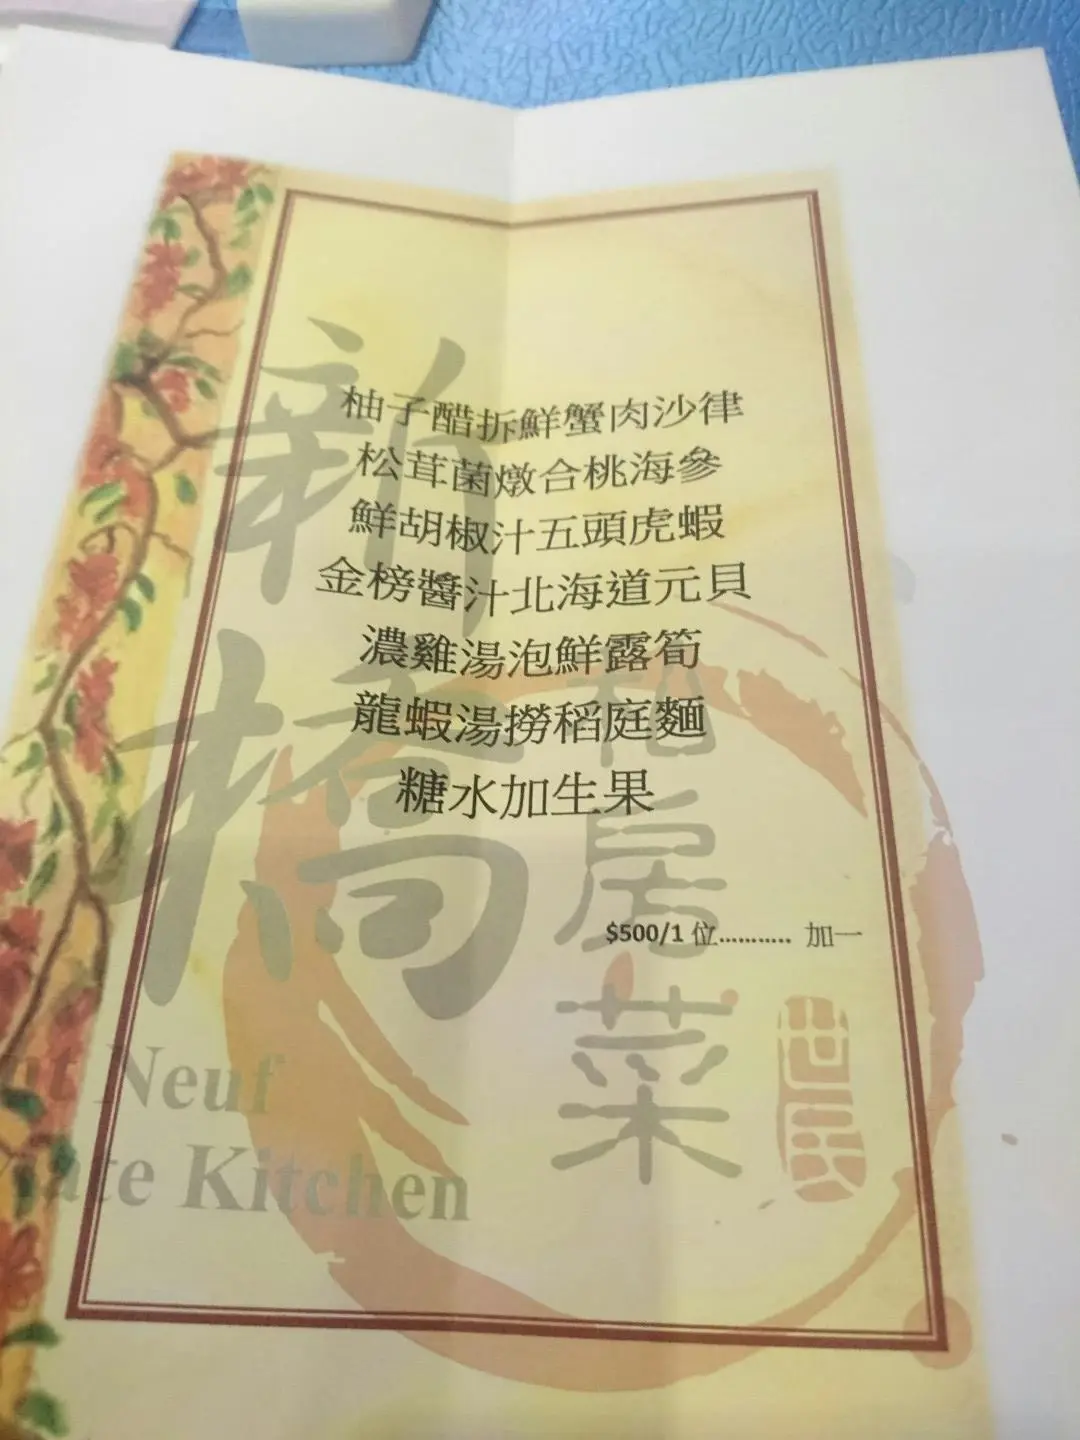 柚子醋拆鮮蟹肉沙律
松茸菌燉合桃海參
鮮胡椒汁五頭虎蝦
金榜醬汁北海道元貝
濃雞湯泡鮮露筍
龍蝦湯撈稻庭麵
糖水加生果
$500/1 位........... 加一
新橋
私房菜
Neuf
Kitchen